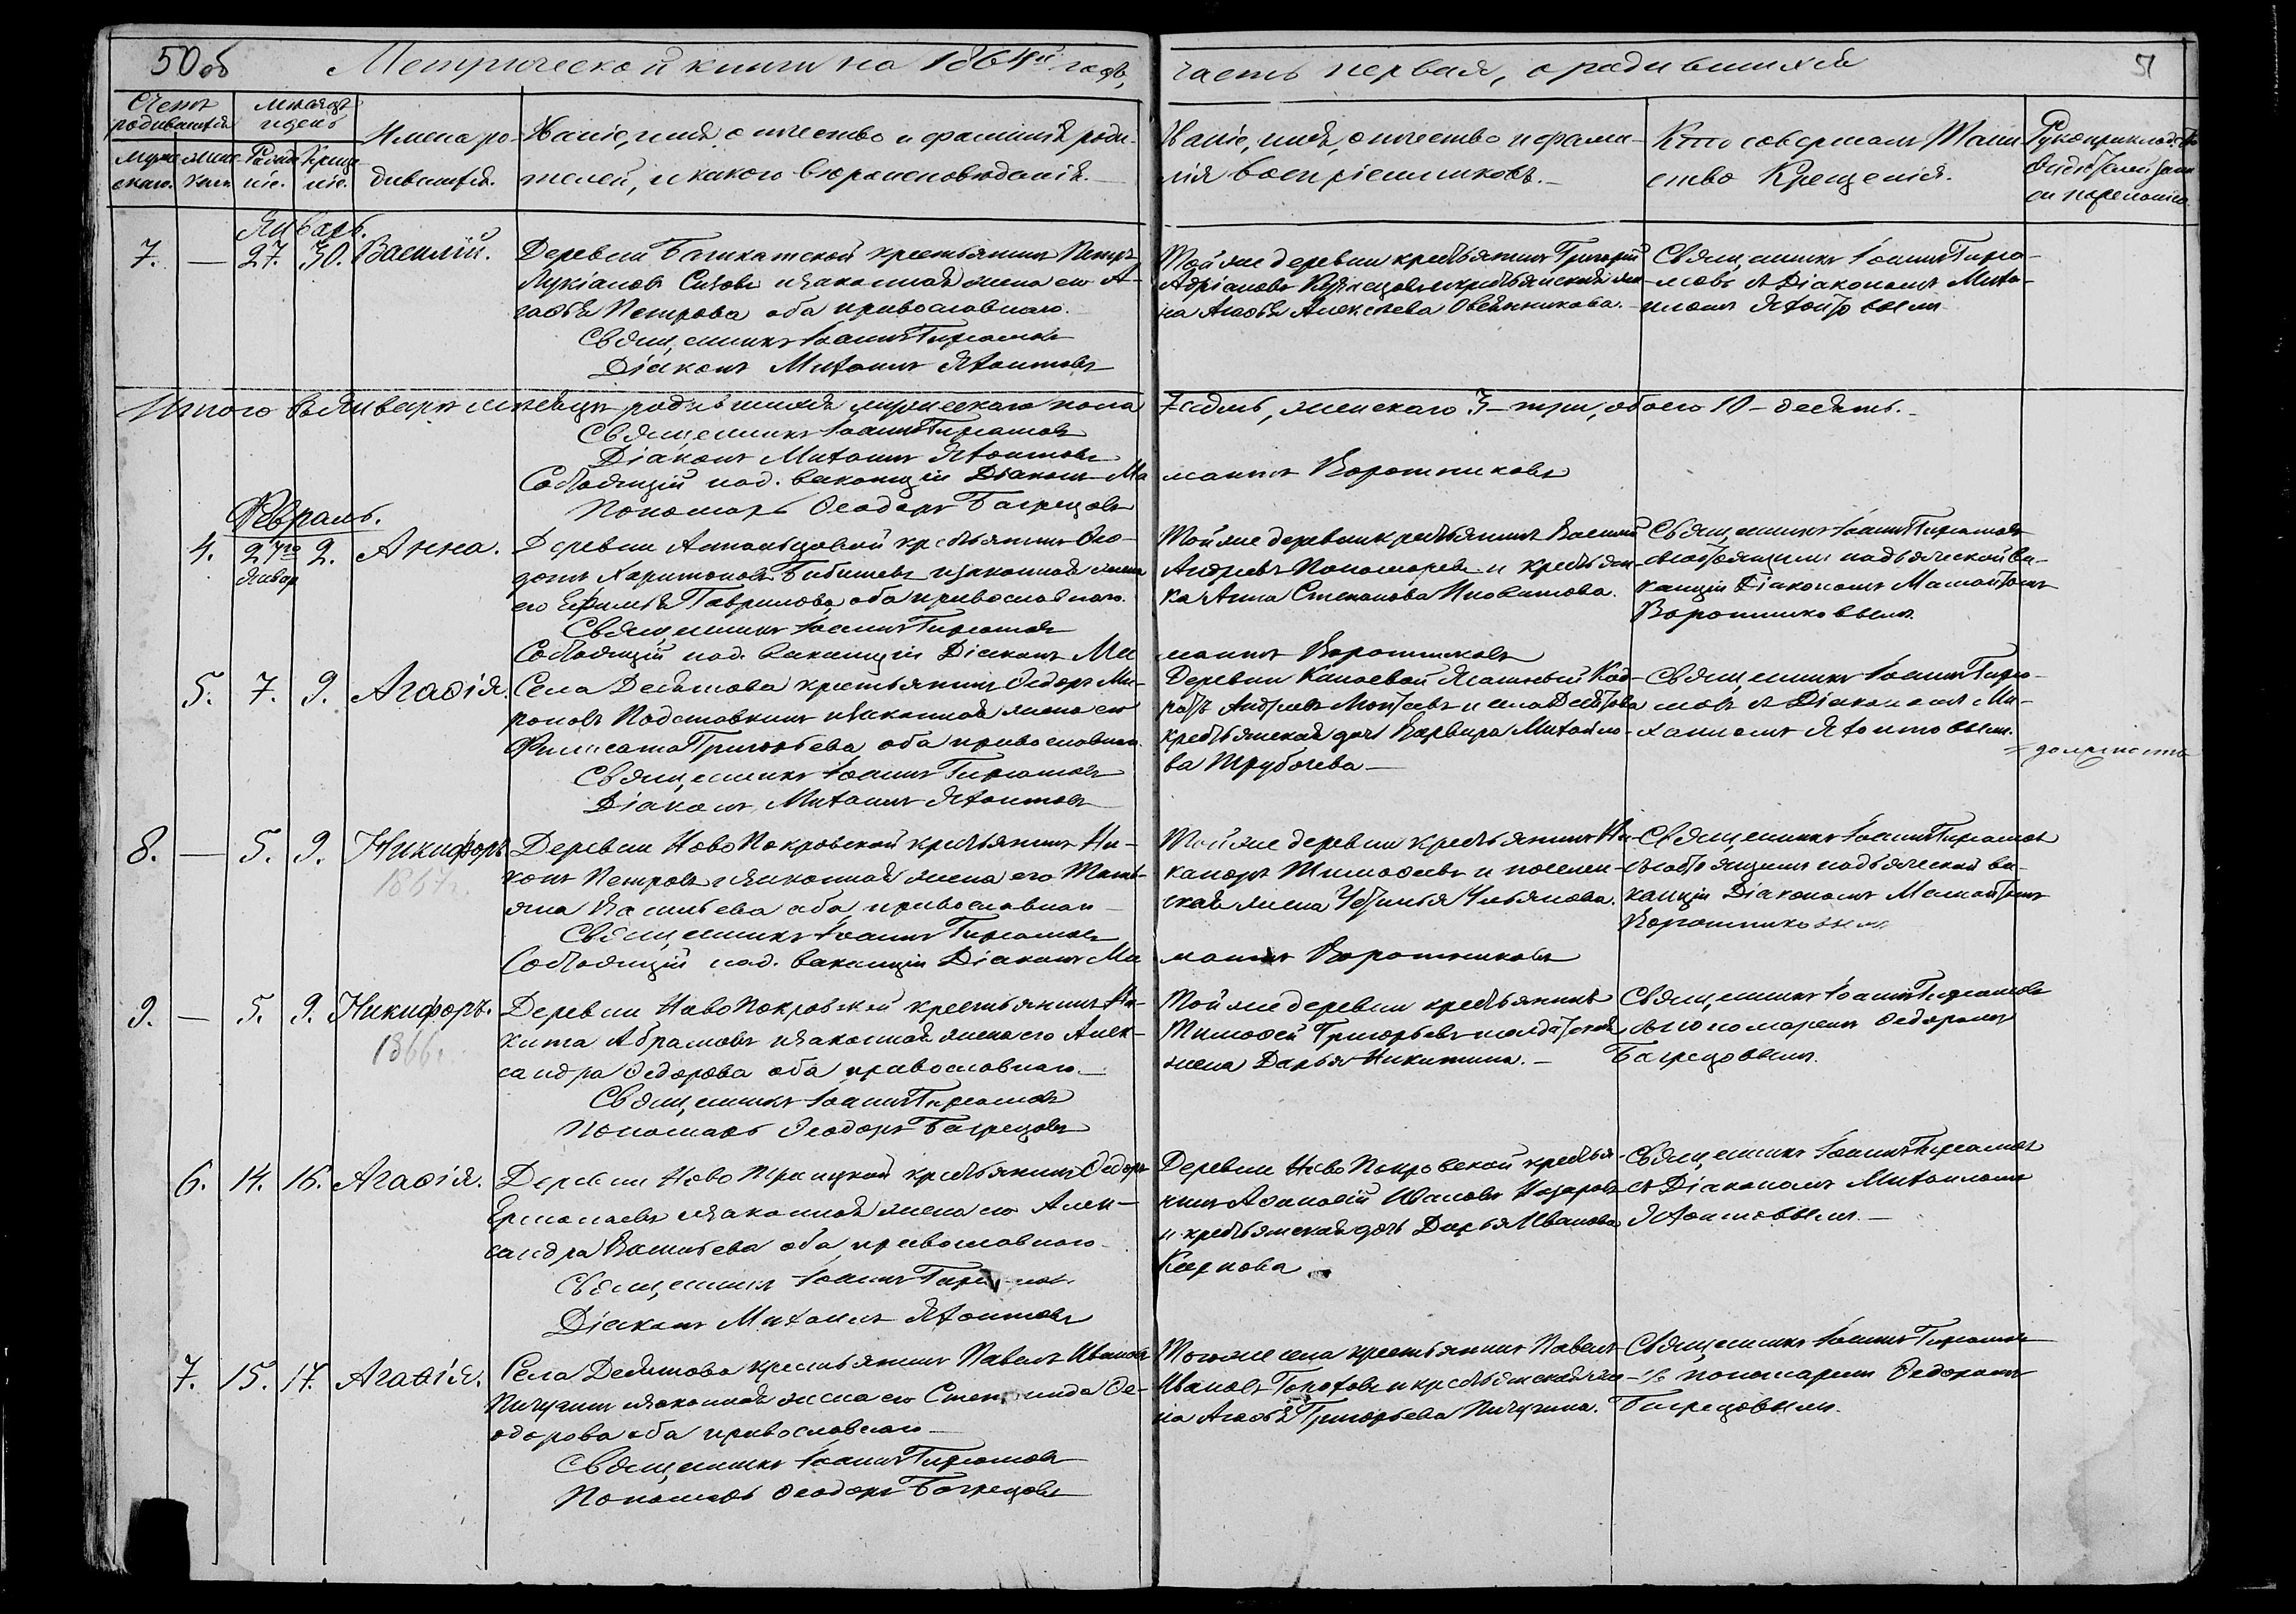 50 об
Метрической книги на 1864й годъ,
часть первая, о родившихся
51
Счетъ родившихся
Мужескаго.
Женскаго
Мѣсяцъ и день
Рожденіе.
Крещеніе.
Имена родившихся.
Званіе, имя, отчество и фамилія роди-
телей, и какого вѣроисповѣданія.
Званіе, имя, отчество и фами-
лія воспріемниковъ.
Кто совершалъ Таин
ство Крещенія.
Рукоприкладство
свидѣтелей записи
по желанію
Январь.
7. — 27. 30. Василій.
Деревни крестьянинъ Петръ
Лукіановъ и законная жена его А-
гаѳья Петрова оба православнаго.
Священникъ Іоаннъ
Діаконъ Михаилъ
Той же деревни крестьянинъ Григорій
Адріановъ Кузнецовъ и крестьянская же-
на Агаѳья Алексѣева Овсянникова.
Священникъ Іоаннъ
съ Діакономъ Миха-
иломъ
Итого въ Январѣ мѣсяцѣ родившихся мужескаго пола
7 седмь, женскаго 3 – три, обоего 10 – десять.
Священникъ Іоаннъ
Діаконъ Михаилъ
Состоящій на д. вакансіи Діаконъ Ма
монтъ Ворошниковъ
Пономарь Ѳеодоръ Багрецовъ
Февраль.
4. 27го Январ 2. Анна.
Деревни крестьянинъ Ѳео-
дотъ Харитоновъ и законная жена
его Гаврилова, оба православнаго.
Священникъ Іоаннъ
Состоящій на д. вакансіи Діаконъ Ма
монтъ Ворошниковъ
Той же деревни крестьянинъ Василій
Андреевъ Пономаревъ и крестьян-
ка Анна Степанова
Священникъ Іоаннъ
съ состоящимъ на дьяческой ва-
кансіи Діакономъ Мамонтомъ
Ворошниковымъ
5. 7. 9. Агаѳія.
Села крестьянинъ Ѳедоръ Ми-
роновъ Подставкинъ и законная жена его
Филисата Григорьева, оба православнаго.
Священникъ Іоаннъ
Діаконъ Михаилъ
Деревни
Андреевъ и села
крестьянская дочь Варвара Михайло-
ва Трубачева —
Священникъ Іоаннъ
съ Діакономъ Ми-
хаиломъ
8. — 5. 9. Никифоръ
1867г.
Деревни Ново Покровской крестьянинъ Ни-
конъ Петровъ и законная жена его Тать-
яна Васильева оба православнаго
Священникъ Іоаннъ
Состоящій на д. вакансіи Діаконъ Ма
монтъ Ворошниковъ
Той же деревни крестьянинъ Ни-
каноръ Тимоѳеевъ и поселен-
ская жена Устинья Ульянова.
Священникъ Іоаннъ
съ состоящимъ на дьяческой ва-
кансіи Діакономъ Мамонтомъ
Ворошниковымъ
9. — 5. 9. Никифоръ.
1866г.
Деревни Ново Покровской крестьянинъ Ни-
кита Абрамовъ и законная жена его Алек-
сандра Ѳедорова оба православнаго —
Священникъ Іоаннъ
Пономарь Ѳеодоръ Багрецовъ
Той же деревни крестьянинъ
Тимоѳей Григорьевъ и солдатская
жена Дарья Никитина. —
Священникъ Іоаннъ
съ пономаремъ Ѳедоромъ
Багрецовымъ.
6. 14. 16. Агаѳія.
Деревни Ново Троицкой крестьянинъ Ѳедоръ
Ермолаевъ и законная жена его Алек-
сандра Васильева оба православнаго
Священникъ Іоаннъ
Діаконъ Михаилъ
Деревни Ново Покровской крестья-
нинъ Аѳанасій Ивановъ
и крестьянская дочь Дарья Иванова
Карпова
Священникъ Іоаннъ
съ Діакономъ Михаиломъ
7. 15. 17. Агаѳія.
Села крестьянинъ Павелъ Ивановъ
Пичугинъ и законная жена его Степанида Ѳе-
одорова оба православнаго —
Священникъ Іоаннъ
Пономарь Ѳеодоръ Багрецовъ
Того же села крестьянинъ Павелъ
Ивановъ и крестьянская же-
на Агаѳья Григорьева Пичугина.
Священникъ Іоаннъ
съ пономаремъ Ѳедоромъ
Багрецовымъ.